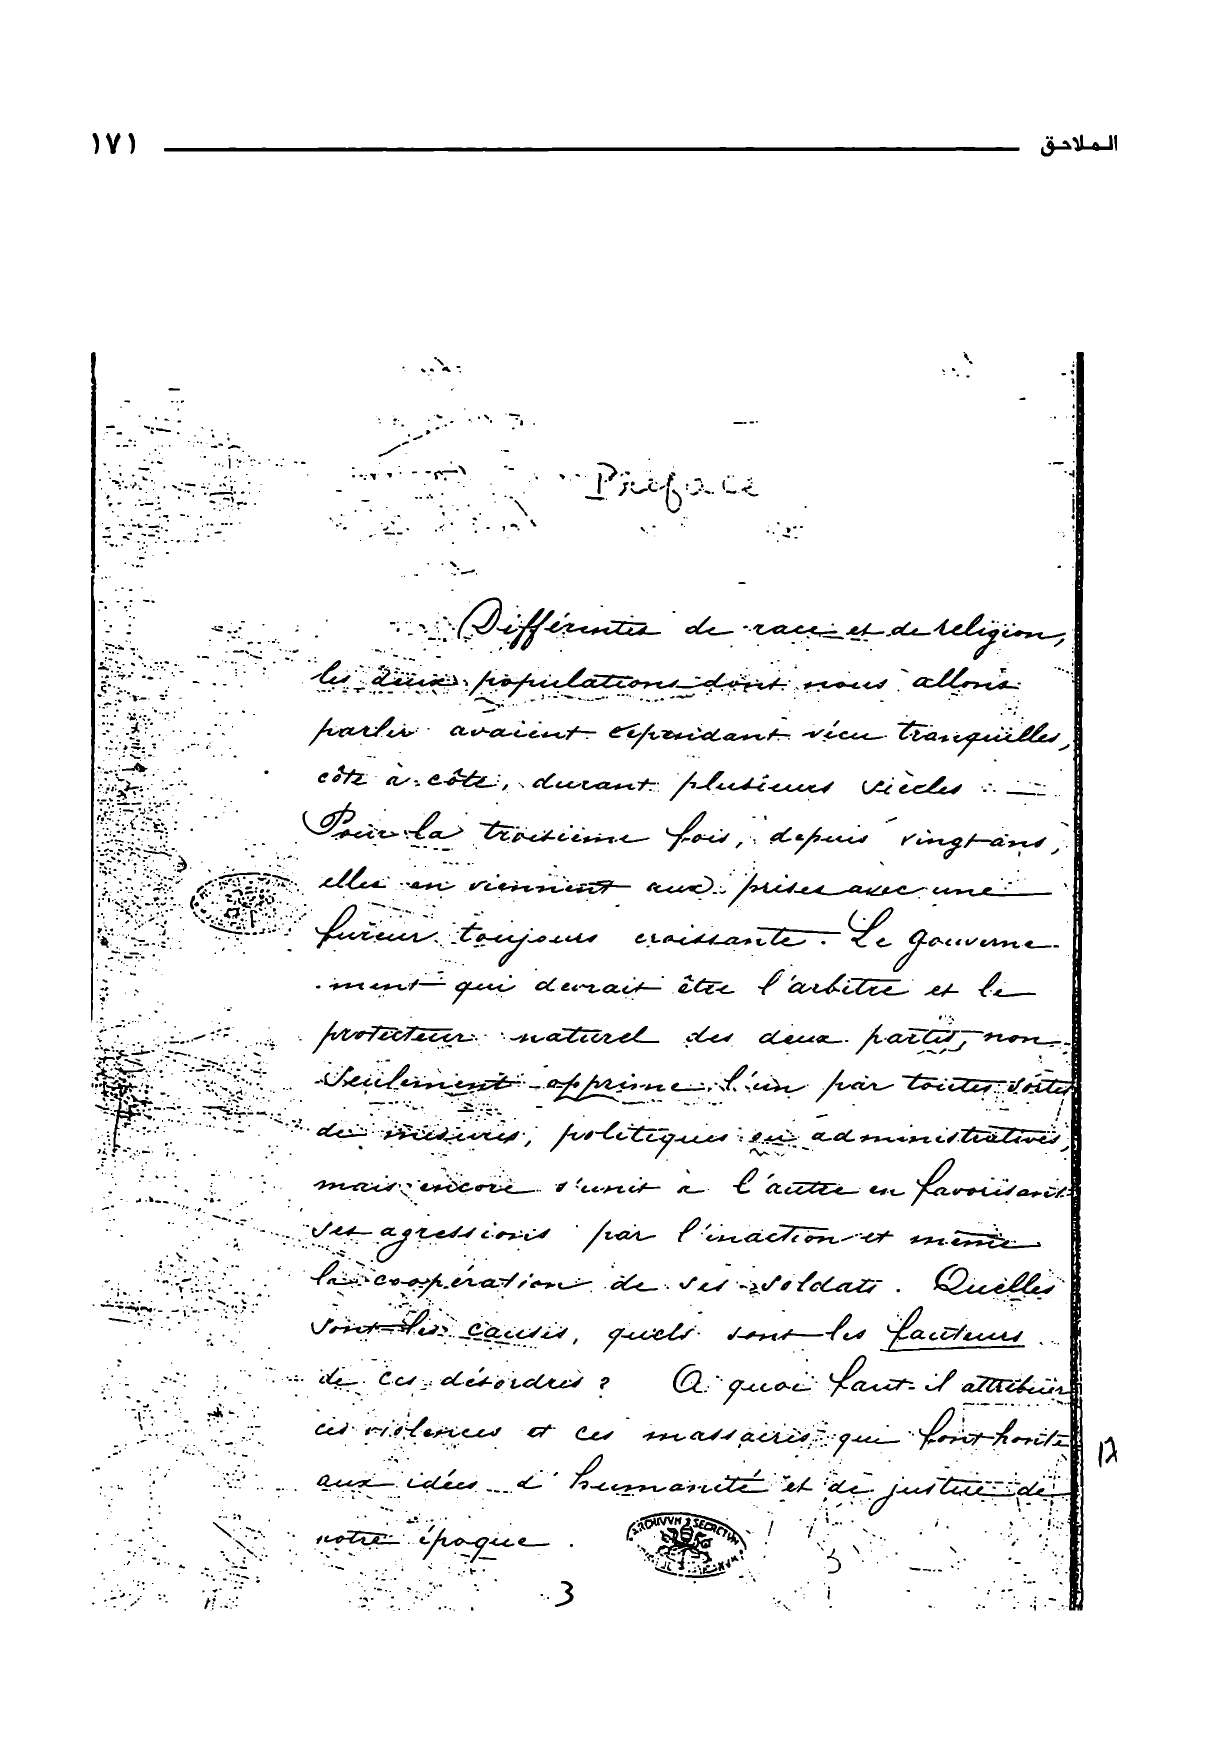 ١٧١ الملاحق
Préface
Différentes de race et de religion,
les deux populations dont nous allons
parler avaient cependant vécu tranquilles,
côte à côte, durant plusieurs siècles. —
Pour la troisième fois, depuis vingt ans,
elles en viennent aux prises avec une
fureur toujours croissante. Le gouverne-
ment qui devrait être l'arbitre et le
protecteur naturel des deux partis, non
seulement opprime l'un par toutes sortes
de mesures, politiques ou administratives,
mais encore s'unit à l'autre en favorisant
ses agressions par l'inaction et même
la coopération de ses soldats. Quelles
sont les causes, quels sont les fauteurs
de ces désordres ? A quoi faut-il attribuer
ces violences et ces massacres qui font honte
aux idées d'humanité et de justice de
notre époque.
ARCHIVUM SECRETUM
3